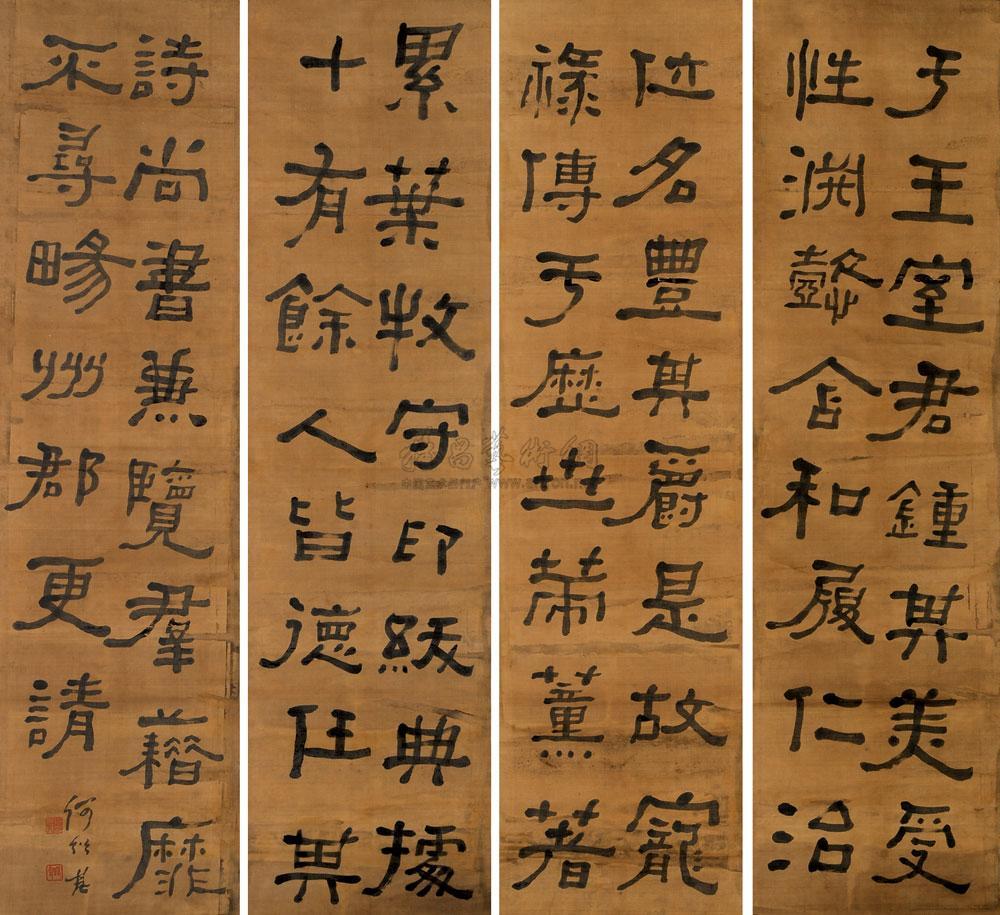 于王室君鍾其美受
性渊懿含和履仁治
位名豐其爵是故寵
祿傳于歷世策薰著
累葉牧守印紱典據
十有餘人皆德任其
詩尚書兼覽羣藉靡
不尋畼州郡更請
何紹基